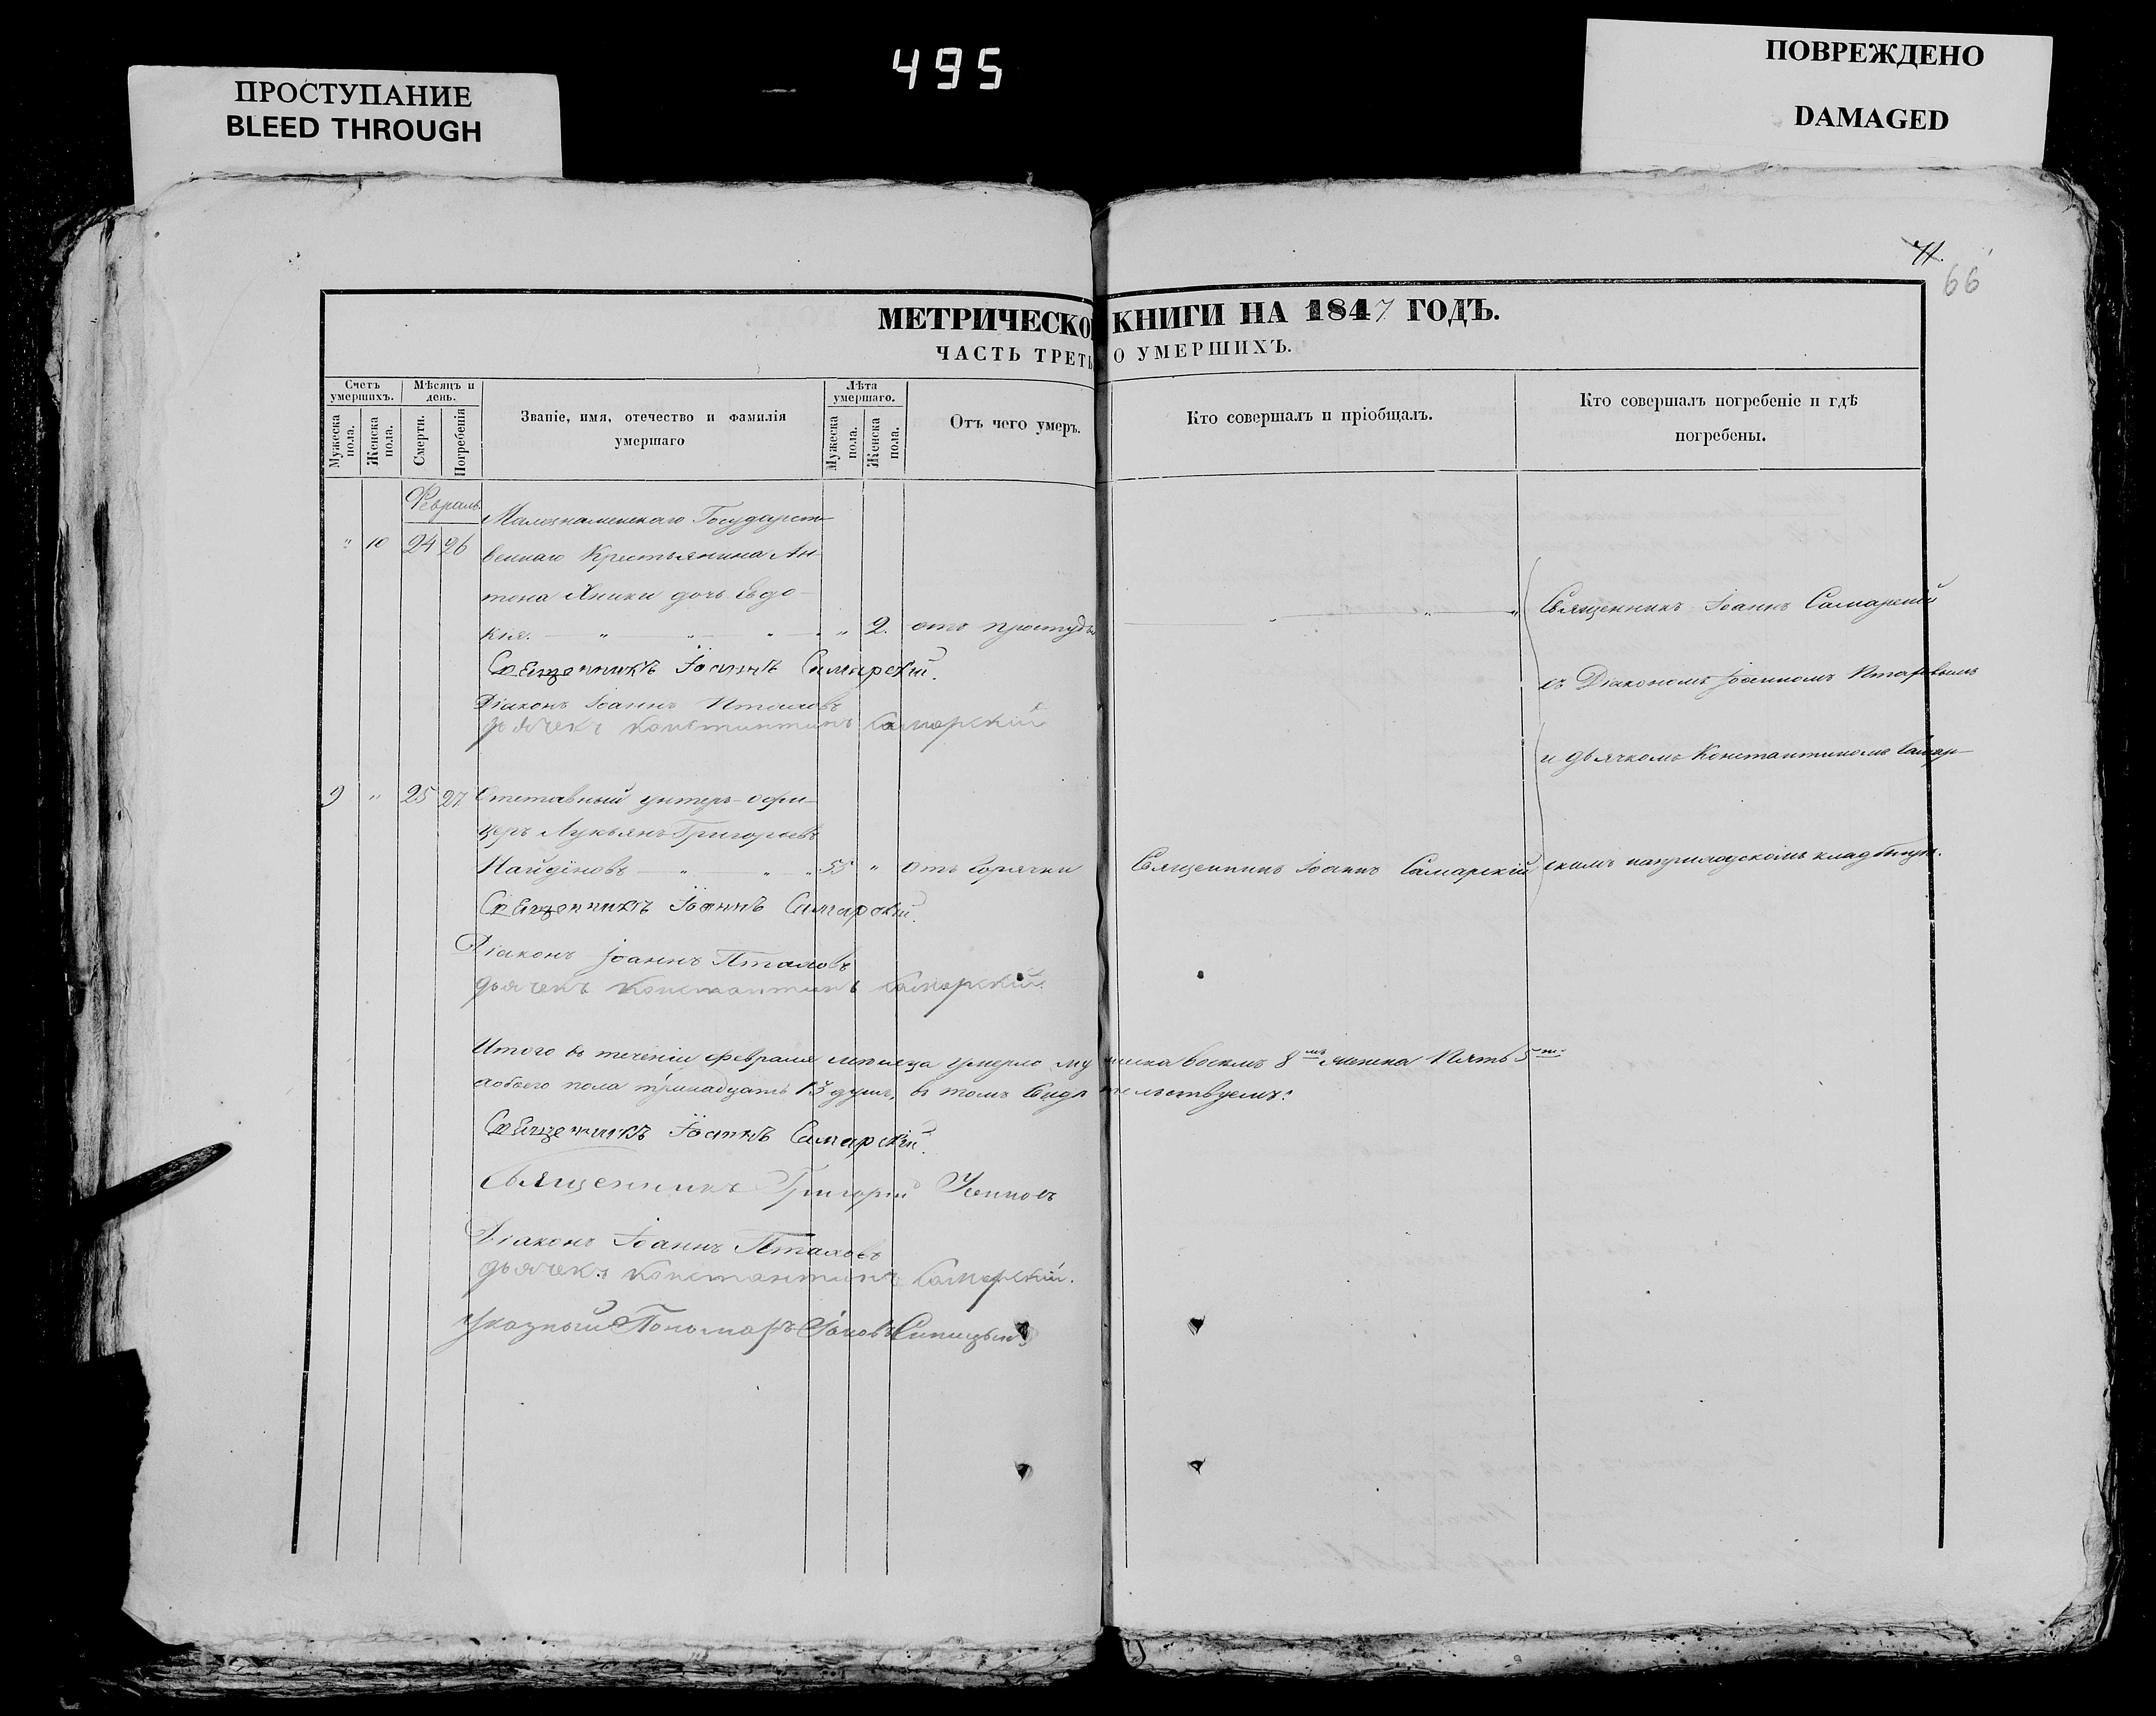 495
ПРОСТУПАНИЕ
BLEED THROUGH
ПОВРЕЖДЕНО
DAMAGED
71.
66
МЕТРИЧЕСКО КНИГИ НА 1847 ГОДЪ.
ЧАСТЬ ТРЕТЬ О УМЕРШИХЪ.
Счетъ умершихъ.
Мужеска пола.
Женска пола.
Мѣсяцъ и день.
Смерти.
Погребенія
Званіе, имя, отечество и фамилія умершаго
Лѣта умершаго.
Мужеска пола.
Женска пола.
Отъ чего умеръ.
Кто совершалъ и пріобщалъ.
Кто совершалъ погребеніе и гдѣ погребены.
Февраль
Малознаменскаго Государст-
" 10 24 26 веннаго Крестьянина Ан-
тона Яники дочь Евдо-
кія. " 2. отъ простуды
Священникъ Іоаннъ Самарскій
Священникъ Іоаннъ Самарскій.
съ Діакономъ Іоанномъ Пталовымъ
Діаконъ Іоаннъ Пталовъ
дьячекъ Константинъ Самарскій
и дьячкомъ Константиномъ Самар-
9 " 25 27 Отставный унтеръ-офи-
церъ Лукьянъ Григорьевъ
Найдёновъ 55 " отъ горячки Священникъ Іоаннъ Самарскій скимъ на кладбищи.
Священникъ Іоаннъ Самарскій.
Діаконъ Іоаннъ Пталовъ
дьячекъ Константинъ Самарскій.
Итого въ теченіи февраля мѣсяца умерло мужеска восемь 8мь женска пять 5ть
а обоего пола тринадцать 13 душъ, въ томъ свидѣтельствуемъ:
Священникъ Іоаннъ Самарскій.
Священникъ Григорій
Діаконъ Іоаннъ Пталовъ
дьячекъ Константинъ Самарскій.
Указный Пономарь Іаковъ Синицынъ